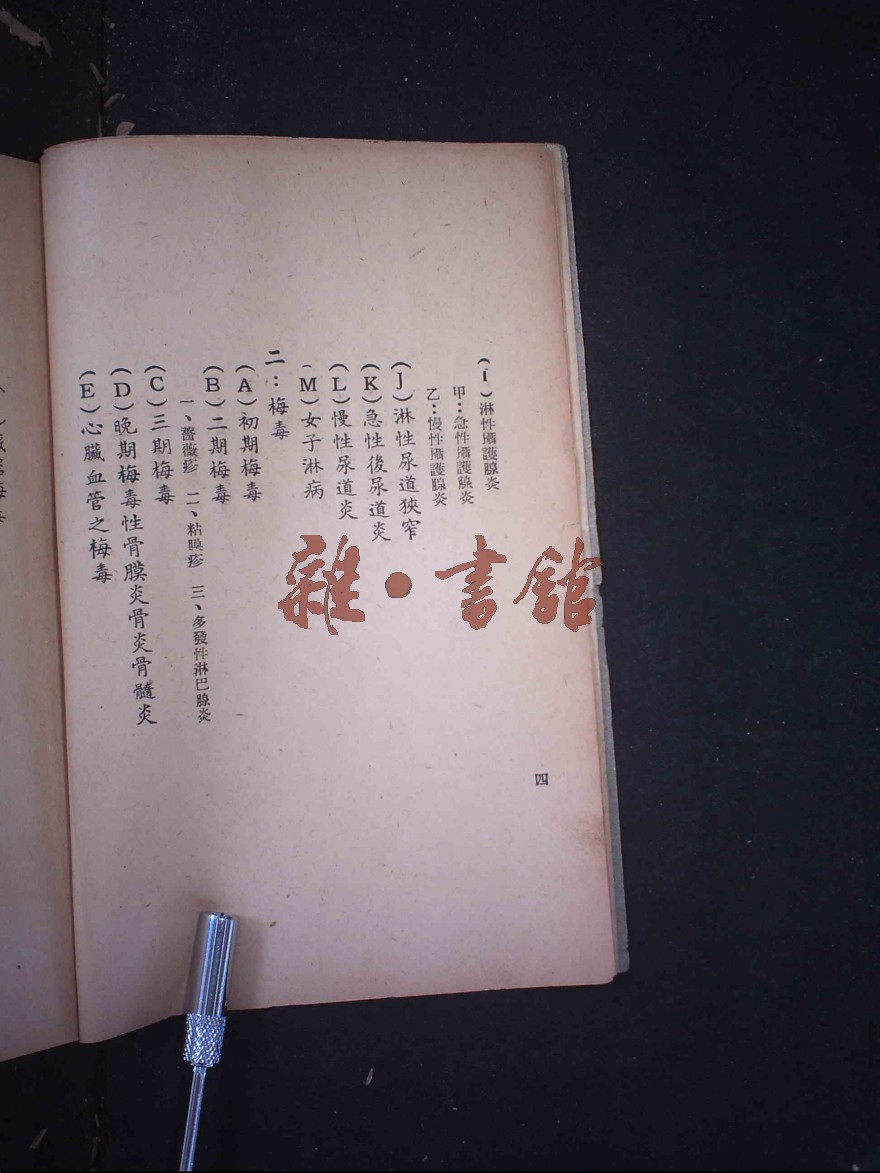 (i)淋性攝護腺炎
甲：急性攝護腺炎
乙：慢性攝護腺炎
(J)淋性尿道狹窄
(K)急性後尿道炎
(L)慢性尿道炎
(M)女子淋病
二：梅毒
(A)初期梅毒
(B)二期梅毒
一、薔薇疹 二、粘膜疹 三、多發性淋巴腺炎
(C)三期梅毒
(D)晚期梅毒性骨膜炎骨炎骨髓炎
(E)心臟血管之梅毒
四
雜·書館